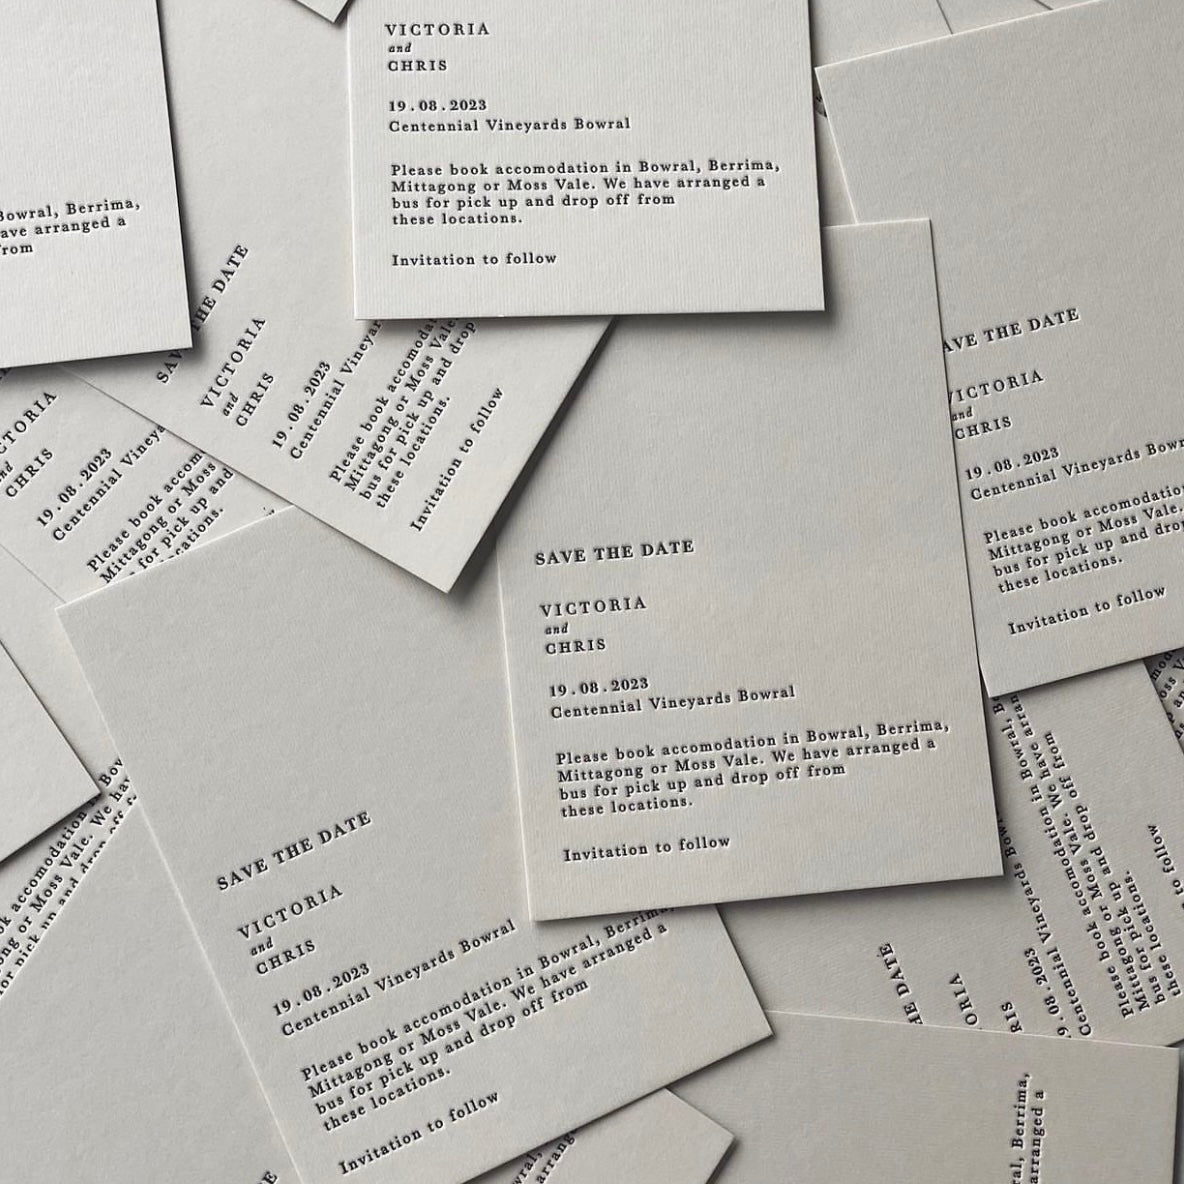 VICTORIA
and
CHRIS
19.08.2023
Centennial Vineyards Bowral
Please book accomodation in Bowral, Berrima,
Mittagong or Moss Vale. We have arranged a
bus for pick up and drop off from
these locations.
Invitation to follow
Bowral, Berrima,
have arranged a
from
SAVE THE DATE
VICTORIA
and
CHRIS
19.08.2023
Centennial
Please book
Mittagong or Moss
bus for pick up and drop
these locations.
Invitation to follow
CHRIS
19.08.2023
Centennial
Please book
Mittagong or Moss
for pick up and
SAVE THE DATE
VICTORIA
and
CHRIS
19.08.2023
Centennial Vineyards Bowral
Please book accomodation in Bowral, Berrima,
Mittagong or Moss Vale. We have arranged a
bus for pick up and drop off from
these locations.
Invitation to follow
THE DATE
VICTORIA
and
CHRIS
19.08.2023
Centennial Vineyards
Please book
Mittagong or Moss Vale.
bus for pick up and
these locations.
Invitation to follow
SAVE THE DATE
VICTORIA
and
CHRIS
19.08.2023
Centennial Vineyards Bowral
Please book accomodation in Bowral, Berrima,
Mittagong or Moss Vale. We have arranged a
bus for pick up and drop off from
these locations.
Invitation to follow
accomodation in
or Moss Vale. We
pick up and drop off
DATE
Centennial Vineyards
Please book accomodation in Bowral,
Mittagong or Moss Vale. We have
bus for pick up and drop off from
these locations.
to follow
Berrima,
arranged a